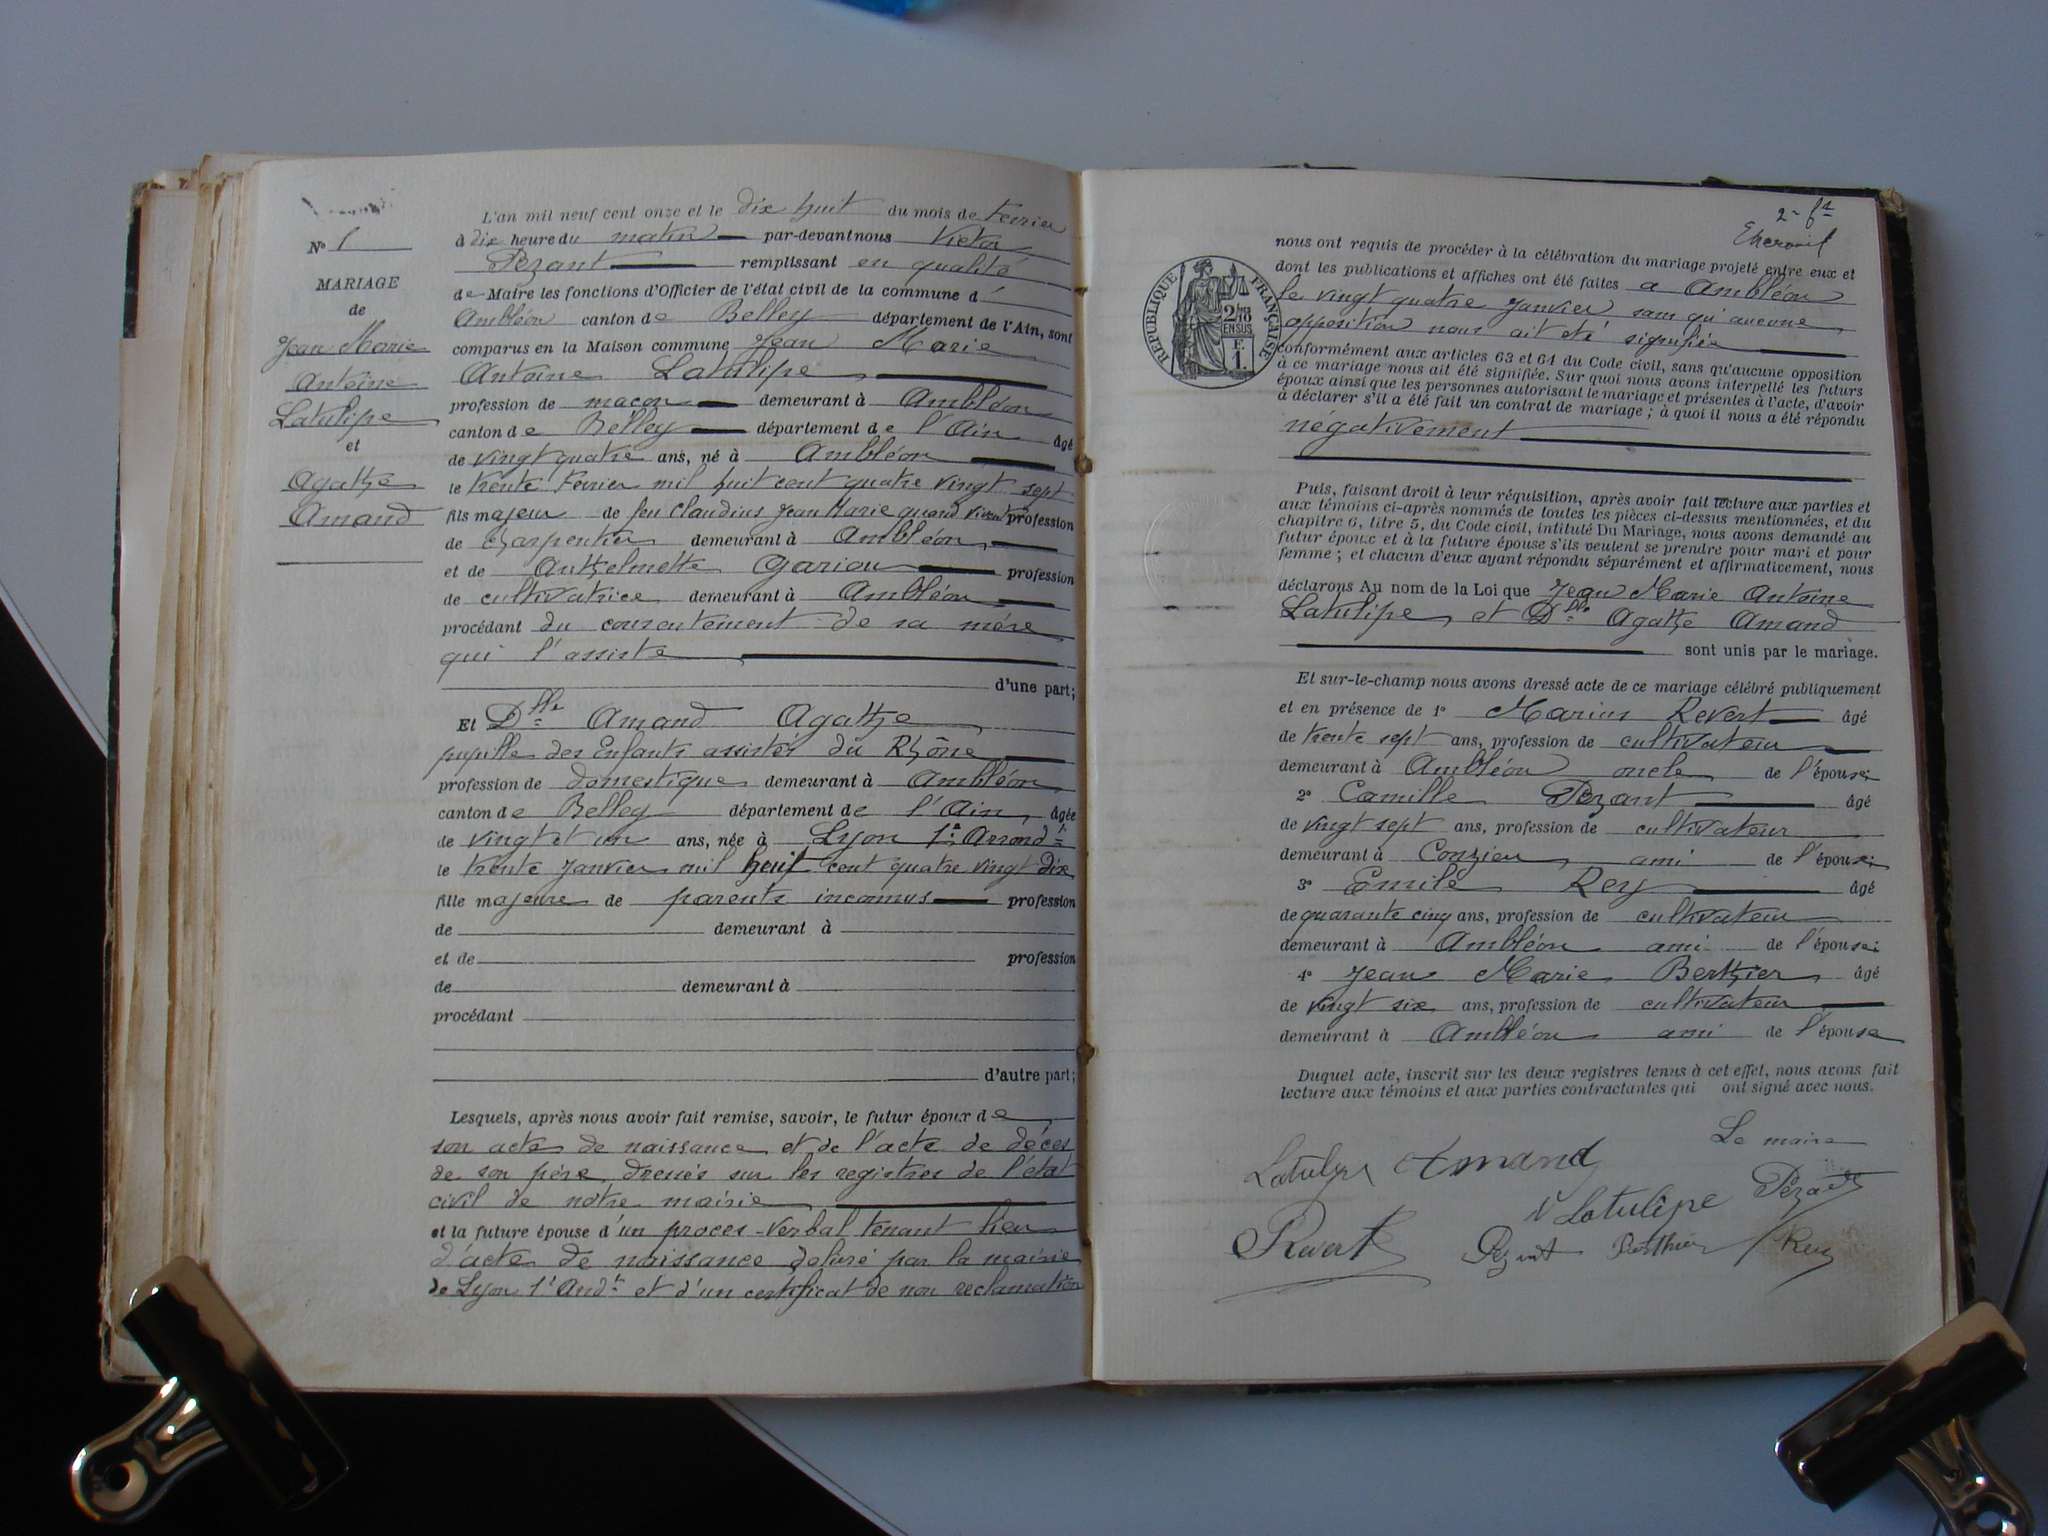 N° 1
MARIAGE
de
Jean Marie
Antoine
Latulipe
et
Agathe
Amand
L'an mil neuf cent onze et le dix huit du mois de Fevrier
à dix heure du matin par-devant nous Victor
Pezant remplissant en qualité
de Maire les fonctions d'Officier de l'état civil de la commune d'
Ambléon canton de Belley département de l'Ain, sont
comparus en la Maison commune Jean Marie
Antoine Latulipe
profession de maçon demeurant à Ambléon
canton de Belley département de l'Ain âgé
de vingt quatre ans, né à Ambléon
le trente Fevrier mil huit cent quatre vingt sept
fils majeur de feu Claudius Jean Marie quand vivait profession
de charpentier demeurant à Ambléon
et de Anthelmette Gariou profession
de cultivatrice demeurant à Ambléon
procédant du consentement de sa mère
qui l'assiste
d'une part;
Et Dlle Amand Agathe
pupille des Enfants assistés du Rhône
profession de domestique demeurant à Ambléon
canton de Belley département de l'Ain, âgée
de vingt et un ans, née à Lyon 1er Arrondt
le trente janvier mil huit cent quatre vingt dix
fille majeure de parents inconnus profession
de demeurant à
et de profession
de demeurant à
procédant
d'autre part;
Lesquels, après nous avoir fait remise, savoir, le futur époux de
son acte de naissance et de l'acte de décès
de son père dressés sur les registres de l'état
civil de notre mairie
et la future épouse d'un procès-verbal tenant lieu
d'acte de naissance delivré par la mairie
de Lyon 1er Arrdt et d'un certificat de non reclamation
2 - ft
RÉPUBLIQUE FRANÇAISE
2/10 EN SUS
E.
1.
nous ont requis de procéder à la célébration du mariage projeté entre eux et
dont les publications et affiches ont été faites à Ambléon
le vingt quatre janvier sans qu'aucune
opposition nous ait été signifiée
conformément aux articles 63 et 64 du Code civil, sans qu'aucune opposition
à ce mariage nous ait été signifiée. Sur quoi nous avons interpellé les futurs
époux ainsi que les personnes autorisant le mariage et présentes à l'acte, d'avoir
à déclarer s'il a été fait un contrat de mariage ; à quoi il nous a été répondu
négativement
Puis, faisant droit à leur réquisition, après avoir fait lecture aux parties et
aux témoins ci-après nommés de toutes les pièces ci-dessus mentionnées, et du
chapitre 6, titre 5, du Code civil, intitulé Du Mariage, nous avons demandé au
futur époux et à la future épouse s'ils veulent se prendre pour mari et pour
femme ; et chacun d'eux ayant répondu séparément et affirmativement, nous
déclarons Au nom de la Loi que Jean Marie Antoine
Latulipe et Dlle Agathe Amand
sont unis par le mariage.
Et sur-le-champ nous avons dressé acte de ce mariage célébré publiquement
et en présence de 1° Marius Revert âgé
de trente sept ans, profession de cultivateur
demeurant à Ambléon oncle de l'épouse;
2° Camille Pezant âgé
de vingt sept ans, profession de cultivateur
demeurant à Conzieu ami de l'épouse;
3° Emile Rey âgé
de quarante cinq ans, profession de cultivateur
demeurant à Ambléon ami de l'épouse;
4° Jean Marie Berthier âgé
de vingt six ans, profession de cultivateur
demeurant à Ambléon ami de l'épouse
Duquel acte, inscrit sur les deux registres tenus à cet effet, nous avons fait
lecture aux témoins et aux parties contractantes qui ont signé avec nous.
Le maire
Latulipe Amand
Vve Latulipe Pezant
Revert Pezant Berthier Rey